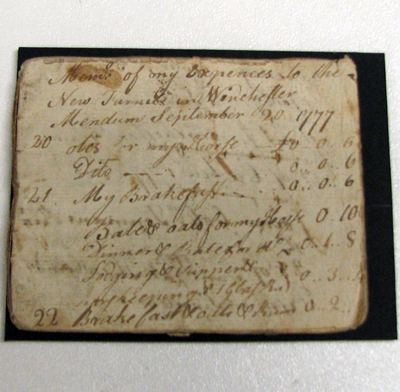 Mem: of my Expences to the
New Turnits in Winchester
Mendum September 20 1777
20 obts for my Horse £0 0..6
Dito 0..0..6
21 My Brakefast 0..0..6
Bate & oats for my horse 0..10
Dinner & Bate 0..1..8
Lodging & Supper & 0..3..
keeping
22 Brakefast & oats & 0..2..